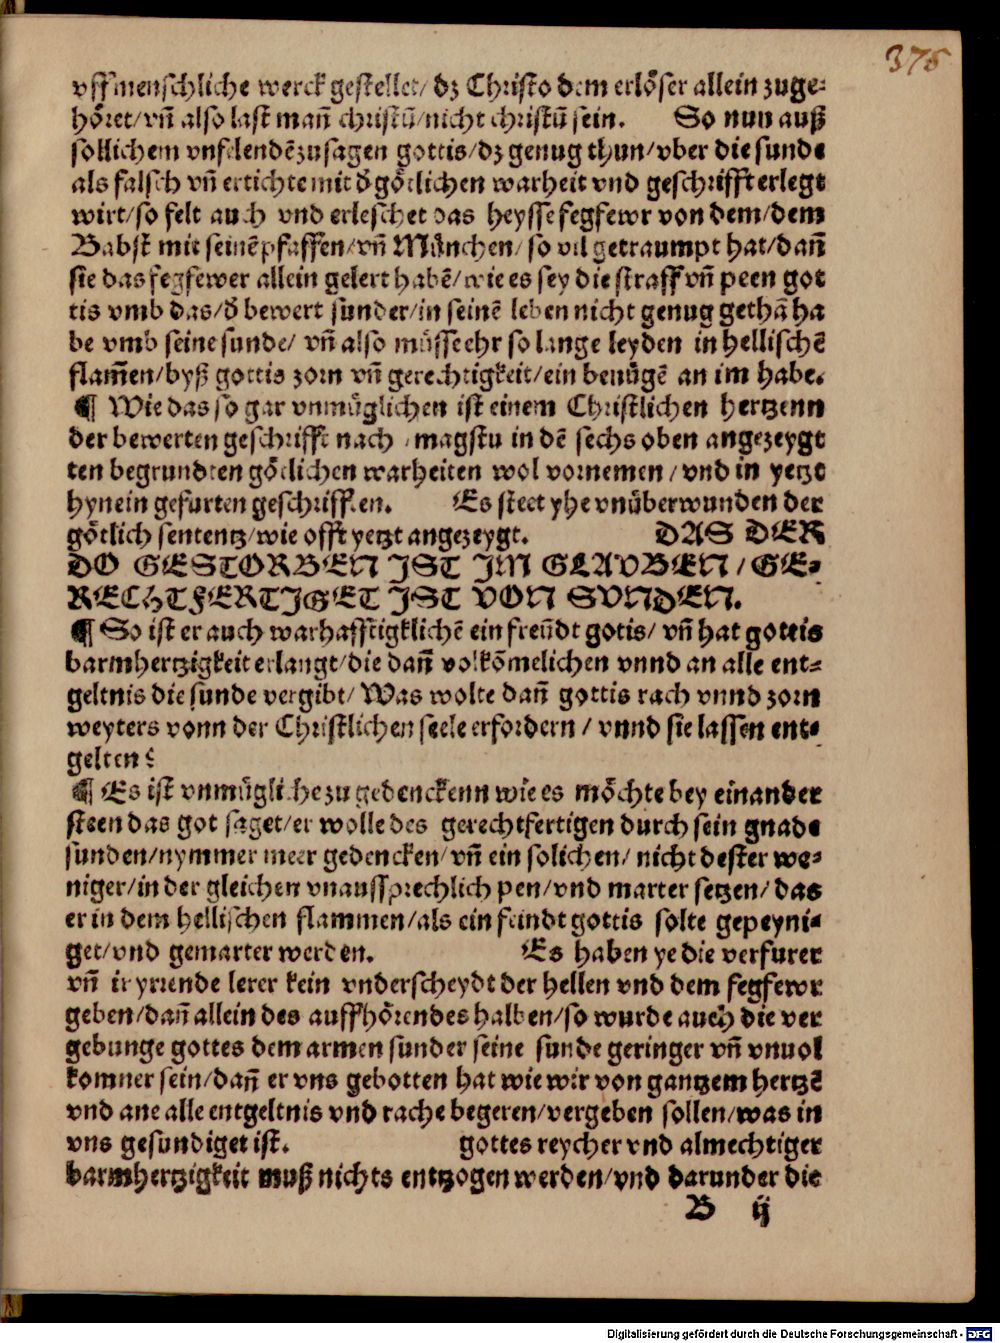 376
vff menschliche werck gestellet/ dz Christo dem erlöser allein zuge-
höret/vn̄ also last man̄ christū/nicht christū sein. So nun auß
sollichem vnfelendē zusagen gottis/dz genug thun/vber die sunde
als falsch vn̄ ertichte mit d̕ götlichen warheit vnd geschrifft erlegt
wirt/so felt auch vnd erleschet das heysse fegfewr von dem/dem
Babst mit seinē pfaffen/vn̄ Mu̇nchen/so vil getraumpt hat/dan̄
sie das fegfewer allein gelert habē/wie es sey die straff vn̄ peen got
tis vmb das/d̕ bewert sunder/in seinē leben nicht genug gethā ha
be vmb seine sunde/ vn̄ also müsse ehr so lange leyden in hellischē
flam̄en/byß gottis zorn vn̄ gerechtigkeit/ein benügē an im habe.
¶ Wie das so gar vnmüglichen ist einem Christlichen hertzenn
der bewerten geschrifft nach/magstu in dē sechs oben angezeygt
ten begrundten götlichen warheiten wol vornemen/vnd in yetzt
hynein gefurten geschrifften. Es steet yhe vnüberwunden der
götlich sententz/wie offt yetzt angezeygt. DAS DER
DO GESTORBEN IST IM GLAVBEN/GE-
RECHTFERTIGET IST VON SVNDEN.
¶ So ist er auch warhafftigklichē ein freündt gotis/ vn̄ hat gottis
barmhertzigkeit erlangt/die dan̄ volkōmelichen vnnd an alle ent-
geltnis die sunde vergibt/ Was wolte dan̄ gottis rach vnnd zorn
weyters vonn der Christlichen seele erfordern/vnnd sie lassen ent-
gelten?
¶ Es ist vnmügliche zu gedenckenn wie es möchte bey einander
steen das got saget/er wolle des gerechtfertigen durch sein gnade
sunden/nymmer meer gedencken/vn̄ ein solichen/nicht dester we-
niger/in der gleichen vnaussprechlich pen/vnd marter setzen/das
er in dem hellischen flammen/als ein feindt gottis solte gepeyni-
get/vnd gemarter werden. Es haben ye die verfurer
vn̄ ir yrrende lerer kein vnderscheydt der hellen vnd dem fegfewr
geben/dan̄ allein des auffhörendes halben/so wurde auch die ver
gebunge gottes dem armen sunder seine sunde geringer vn̄ vnuol
komner sein/dan̄ er vns gebotten hat wie wir von gantzem hertzē
vnd ane alle entgeltnis vnd rache begeren/vergeben sollen/was in
vns gesundiget ist. gottes reycher vnd almechtiger
barmhertzigkeit muß nichts entzogen werden/vnd darunder die
B ij
Digitalisierung gefördert durch die Deutsche Forschungsgemeinschaft - DFG